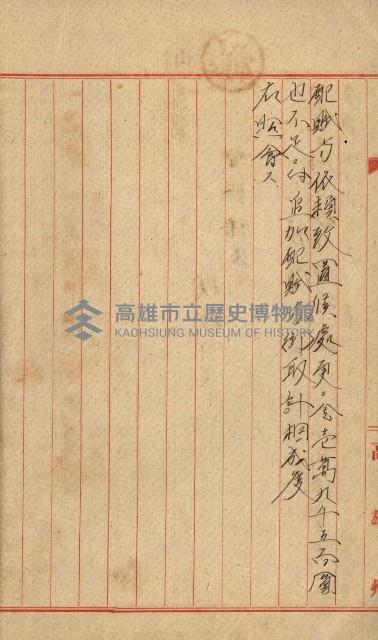 配賦方依頼致置候處更ニ金壱萬九千五百圓
也不足ニ付追加配賦方御取計相成度
右照會ス
高雄市立歷史博物館
KAOHSIUNG MUSEUM OF HISTORY
高雄州